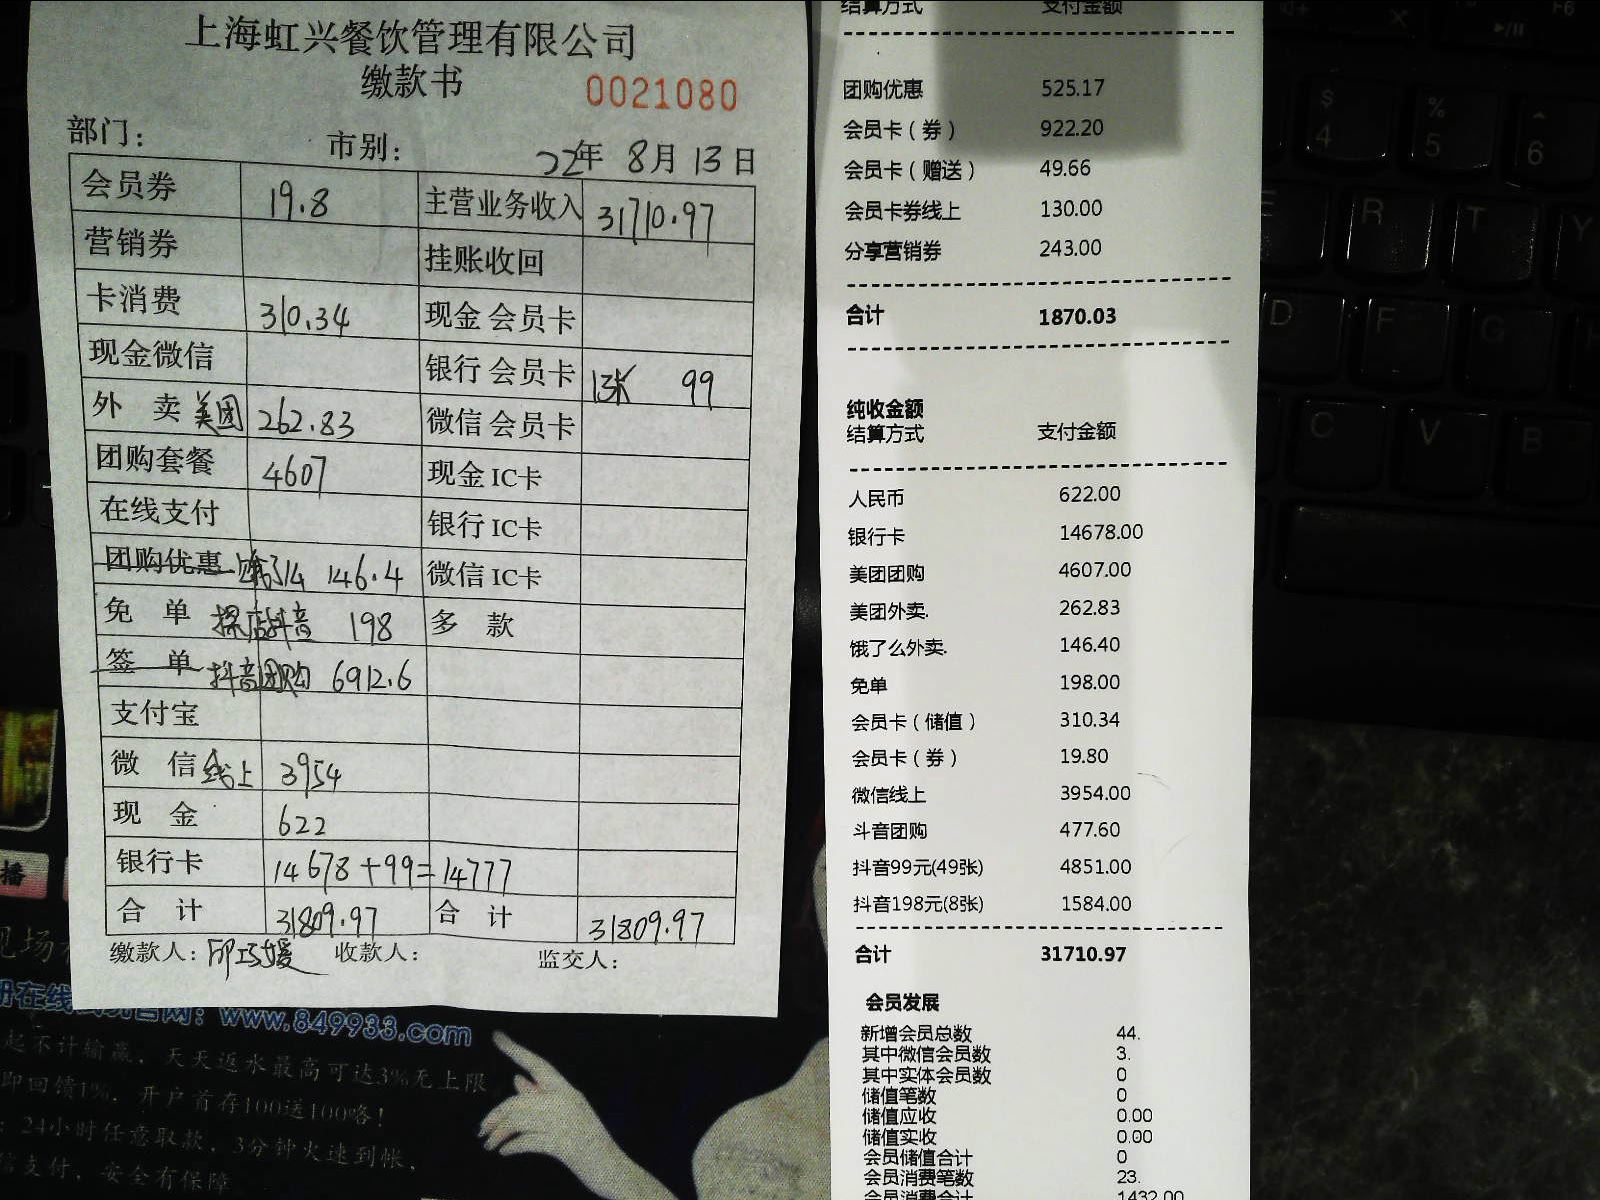 上海虹兴餐饮管理有限公司
缴款书
0021080
部门：
市别：
22年 8月 13日
会员券 19.8 主营业务收入 31710.97
营销券 挂账收回
卡消费 310.34 现金 会员卡
现金微信 银行 会员卡 13张 99
外 卖 美团 262.83 微信 会员卡
团购套餐 4607 现金 IC卡
在线支付 银行 IC卡
团购优惠 146.4 微信 IC卡
免 单 探店抖音 198 多 款
签 单 抖音团购 6912.6
支付宝
微 信 线上 3954
现 金 622
银行卡 14678+99=14777
合 计 31809.97 合 计 31809.97
缴款人： 收款人： 监交人：
结算方式 支付金额
团购优惠 525.17
会员卡（券） 922.20
会员卡（赠送） 49.66
会员卡券线上 130.00
分享营销券 243.00
合计 1870.03
纯收金额
结算方式 支付金额
人民币 622.00
银行卡 14678.00
美团团购 4607.00
美团外卖. 262.83
饿了么外卖. 146.40
免单 198.00
会员卡（储值） 310.34
会员卡（券） 19.80
微信线上 3954.00
斗音团购 477.60
抖音99元(49张) 4851.00
抖音198元(8张) 1584.00
合计 31710.97
会员发展
新增会员总数 44.
其中微信会员数 3.
其中实体会员数 0
储值笔数 0
储值应收 0.00
储值实收 0.00
会员储值合计 0
会员消费笔数 23.
会员消费合计 1432.00
www.849933.com
起不计输赢，天天返水最高可达3%无上限
即回馈1%，开户首存100送100咯！
：24小时任意取款，3分钟火速到帐，
信支付，安全有保障
播
$ 4
% 5
^ 6
F6
E
R
T
Y
D
F
G
C
V
B